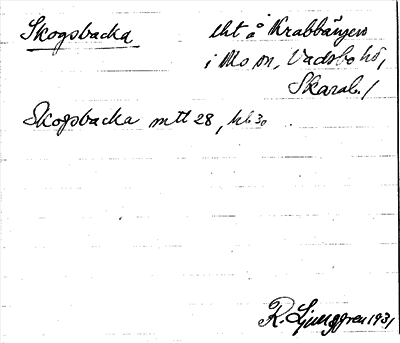 Skogsbacka lht å Krabbängen
i Mo sn, Vadsbo hd,
Skarab. l
Skogsbacka mtt 28, hb. 30
R. Ljunggren 1931